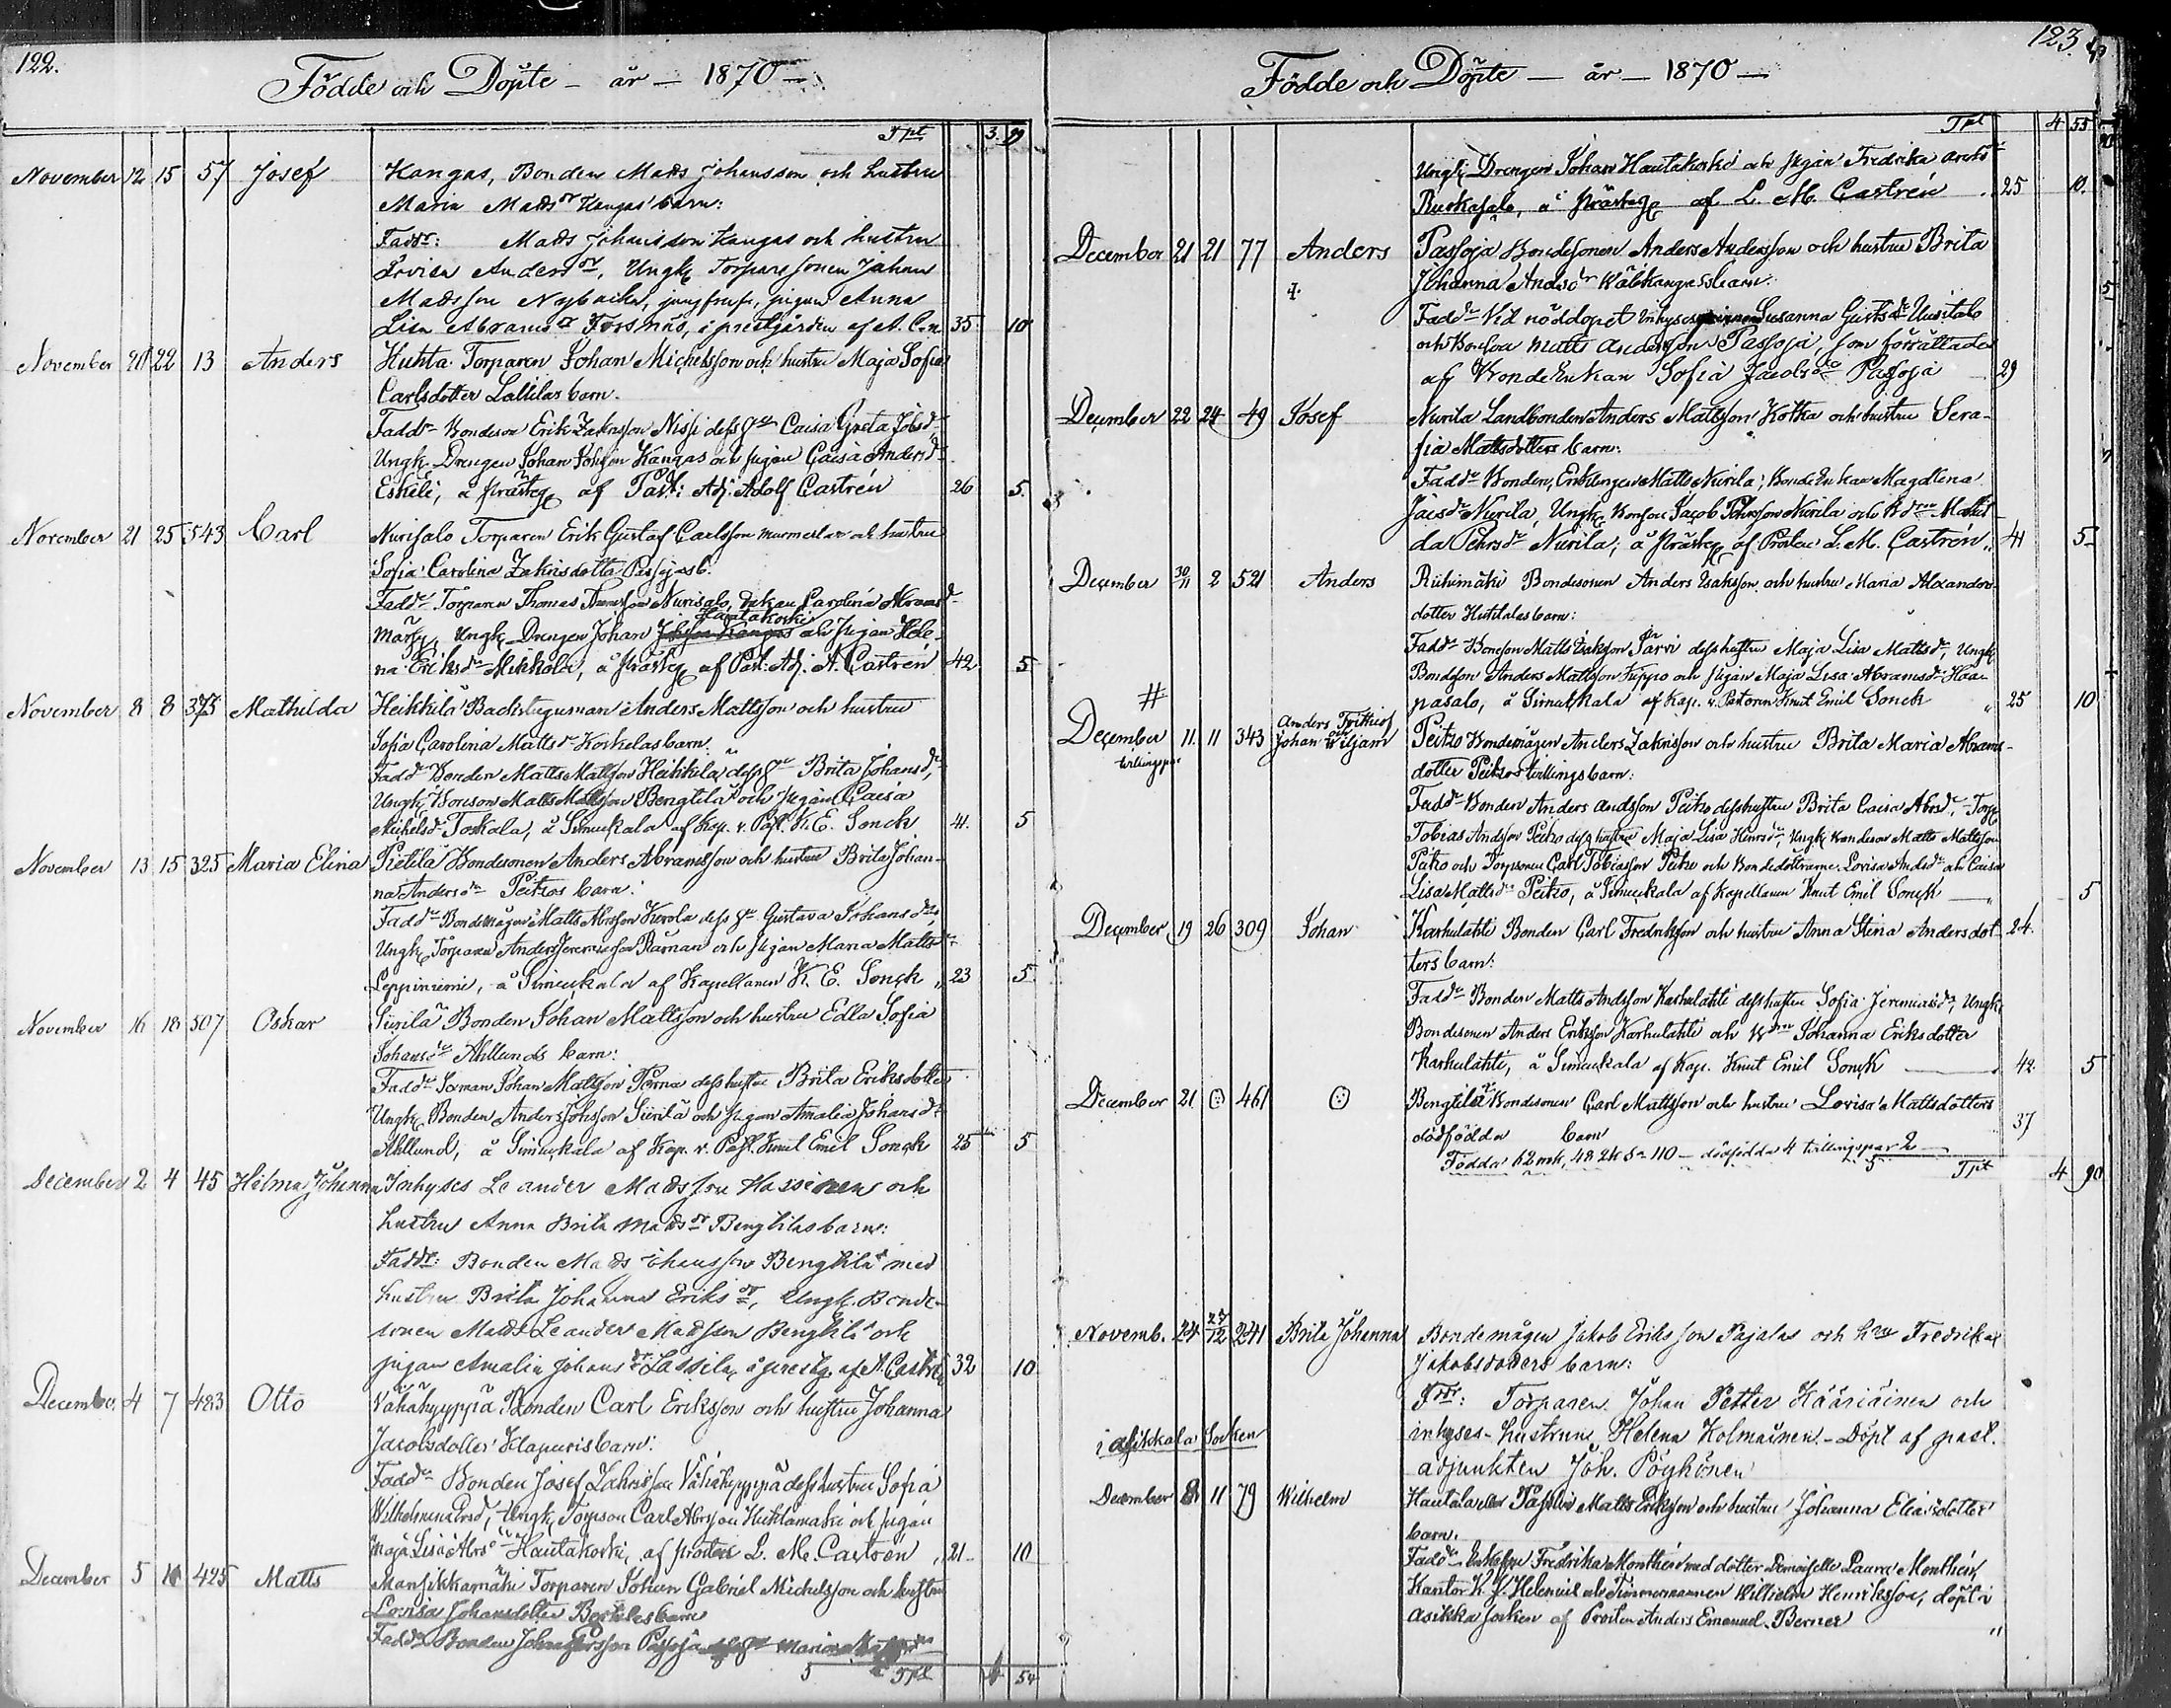 122.
Födde och Döpte - år - 1870 -
Tpt 3. 99
November 12 15 57 Josef Kangas, Bonden Matts Johansson och hustru
Maria Mattsdr Kangas' barn:
Faddr: Matts Johansson Kangas och hustru
Lovisa Andersdr, Ungk Torparesonen Johan
Mattsson Nybacka, jungfrun, pigan Anna
Lisa Abramsdr Forsnäs, i prestgården af A. C-n 35 10
November 20 22 13 Anders Huhta Torparen Johan Michelsson och hustru Maja Sofia
Carlsdotter Lassilas barn.
Faddr Bondeson Erik Zakrisson Nissi dess hu Caisa Greta Jobsdr
Ungk. Drengen Johan Johsson Kangas och pigan Caisa Andersdr
Eskeli, å prästg af Past: Adj: Adolf Castrén 26 5.
November 21 25 543 Carl Nurisalo Torparen Erik Gustaf Carlsson murmestare och hustru
Sofia Carolina Zakrisdotter Passojas b.
Faddr Torparen Thomas Thomasson Nurisalo, Enkan Carolina Abramsdr
Hautakoski
Ungk Drengen Johan Johsson Kangas och pigan Hele-
na Eriksdr Mikkola, å prästg af Past: Adj. A. Castrén 42 5
November 8 8 375 Mathilda Heikkilä Backstuguman Anders Mattsson och hustru
Sofia Carolina Mattsdr Koskelas barn.
Faddr Bonden Matts Mattsson Heikkilä dess hu Brita Johansdr,
Ungk Bonson Matts Mattsson Bengtilä och pigan Caisa
Michelsdr Toskala, å Simuckala af Kap. v. Past. K. E. Sonck 41. 5
November 13 15 325 Maria Elina Pietilä Bondesonen Anders Abramsson och hustru Brita Johan-
na Andersdr Peitzos barn:
Faddr Bondemågen Matts Abrsson Kerola dess hu Gustava Johansdr
Ungk Torparen Anders Jeremiasson Pärnan och pigan Maria Mattsdr
Leppiniemi, å Simuckala af Kapellanen K. E. Sonck „ 23 5
November 16 18 507 Oskar Siirilä Bonden Johan Mattsson och hustru Edla Sofia
Johansdr Ahllunds barn:
Faddr Sexman Johan Mattsson Perna dess hustru Brita Eriksdotter
Ungk Bonden Anders Johsson Siirilä och pigan Amalia Johansdr
Ahllund, å Simuckala af Kap. v. Past. Knut Emil Sonck 25 5
December 2 4 45 Hilma Johanna Inhyses Leander Mattsson Hassinen och
hustru Anna Brita Mattsdr Bengtilas barn:
Faddr: Bonden Matts Johansson Bengtilä med
hustru Brita Johanna Eriksdr, Ungk. Bonde-
sonen Matts Leander Mattsson Bengtilä och
pigan Amalia Johansdr Lassila, å prestg. af A. Castrén 32 10
December 4 7 483 Otto Vähähyyppiä Bonden Carl Eriksson och hustru Johanna
Jacobsdotter Klapuris barn:
Faddr Bonden Josef Zakrisson Vähähyyppiä dess hustru Sofia
Wilhelmina Ersdr, Ungk Torpson Carl Abrsson Huhtamäki och pigan
Maja Lisa Abrsdr Hautakoski, af Prosten L. M. Castrén „ 21 10
December 5 10 425 Matts Mansikkamäki Torparen Johan Gabriel Michelsson och hustru
Lovisa Johansdotter Bertulas barn
Faddr Bonden Johan Persson Passoja
5 Tpt 4 54
123.
Födde och Döpte - år - 1870 -
Tpt 4 55
Ungk Drengen Johan Hautakoski och pigan Fredrika Arendsdr
Ruokasalo, å prästg af L. M. Castrén . 25 10.
December 21 21 77 Anders Passoja Bondesonen Anders Andersson och hustru Brita
Johanna Andersdr Wälikangas barn.
Faddr Vid nöddopet Susanna Gustsdr Uusitalo
och Bonson Matts Andersson Passoja, som förrättades
af Bonde Enkan Sofia Jacobsdr Passoja 29
December 22 24 49 Josef Nurila Landbonden Anders Mattsson Kotka och hustru Sera-
fia Mattsdotters barn:
Faddr Bonden, Enklingen Matts Nurila, Bonde Enkan Magdlena
Jacsdr Nurila, Ungk. Bonson Jacob Pehrsson Nurila och Bdrn Matil
da Pehrsdr Nurila, å prästg af Prosten L. M. Castrén „ 41 5
December 30/11 2 521 Anders Riihimäki Bondesonen Anders Isaksson och hustru Maria Alexanders-
dotter Huttulas barn:
Faddr Bonson Matts Isaksson Järvi dess hustru Maja Lisa Mattsdr, Ungk
Bondson Anders Mattsson Juppo och pigan Maja Lisa Abramsdr Haa-
pasalo, å Simuckala af Kap. v. Pastoren Knut Emil Sonck „ 25 10
#
December 11. 11 343 Anders Frithiof
och
Johan Wiljam Peitzo Bondemågen Anders Zakrisson och hustru Brita Maria Abrams-
tvillingpar dotter Peitzos tvillingsbarn:
Faddr Bonden Anders Andsson Peitzo dess hustru Brita Caisa Abrsdr, Torp
Tobias Andsson Peitzo dess hustru Maja Lisa Henrsdr, Ungk Bondeson Matts Mattsson
Peitzo och Torpsonen Carl Tobiasson Peitzo och Bondedöttrarne Lovisa Andsdr och Caisa
Lisa Mattsdr Peitzo, å Simuckala af Kapellanen Knut Emil Sonck 5
December 19 26 309 Johan Karhulahti Bonden Carl Fredriksson och hustru Anna Stina Andersdot 24.
ters barn:
Faddr Bonden Matts Andsson Karhulahti dess hustru Sofia Jeremiasdr, Ungk
Bondesonen Anders Eriksson Karhulahti och Bdrn Johanna Eriksdotter
Karhulahti, å Simuckala af Kap. Knut Emil Sonck 42. 5
December 21 461 Bengtilä Bondesonen Carl Mattsson och hustru Lovisa Mattsdotters
dödfödda barn 37
Födda 62 mk, 48 2k S:a 110 - dödfödda 4 tvillingspar 2
5 Tpt 4 90
Novemb. 24 27/12 241 Brita Johanna Bondemågen Jakob Eriksson Pajalas och hru Fredrika
Jakobsdotters barn:
Fddr: Torparen Johan Petter Kääriäinen och
inhyses-hustrun Helena Kolmainen. - Döpt af past.
adjunkten Joh. Pöyhönen
i Asikkala Socken
December 8 11 79 Wilhelm Hautala eller Passin Matts Eriksson och hustru Johanna Eliasdotter
barn.
Faddr Enkefru Fredrika Monthén med dotter Demoiselle Laura Monthén,
Kantor K. J. Helenius och Timmermannen Wilhelm Henriksson, döpt i
Asikkala socken af Prosten Anders Emanuel Berner „